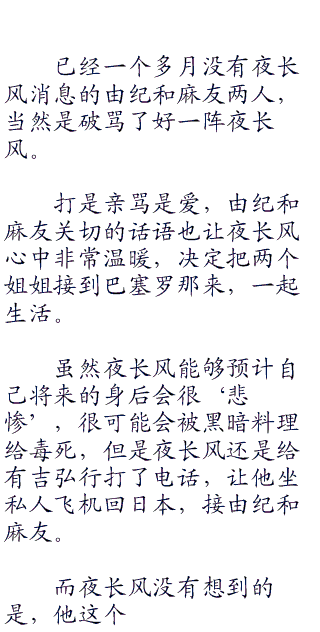 已经一个多月没有夜长
风消息的由纪和麻友两人，
当然是破骂了好一阵夜长
风。
打是亲骂是爱，由纪和
麻友关切的话语也让夜长风
心中非常温暖，决定把两个
姐姐接到巴塞罗那来，一起
生活。
虽然夜长风能够预计自
己将来的身后会很‘悲
惨’，很可能会被黑暗料理
给毒死，但是夜长风还是给
有吉弘行打了电话，让他坐
私人飞机回日本，接由纪和
麻友。
而夜长风没有想到的
是，他这个